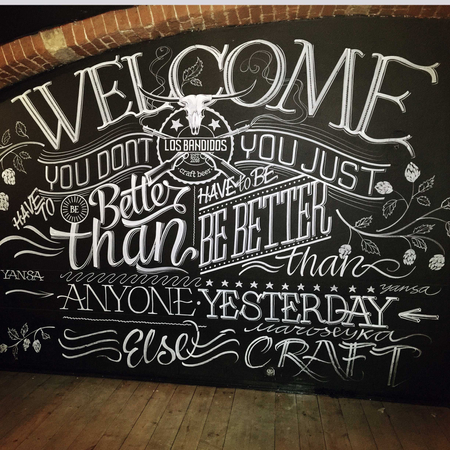 WELCOME
LOS BANDIDOS
craft beer
YOU DONT
HAVE TO
BE
Better
than
ANYONE
Else
YOU JUST
HAVE to BE
BE BETTER
than
YESTERDAY
YANSA
yansa
maroseyka
CRAFT